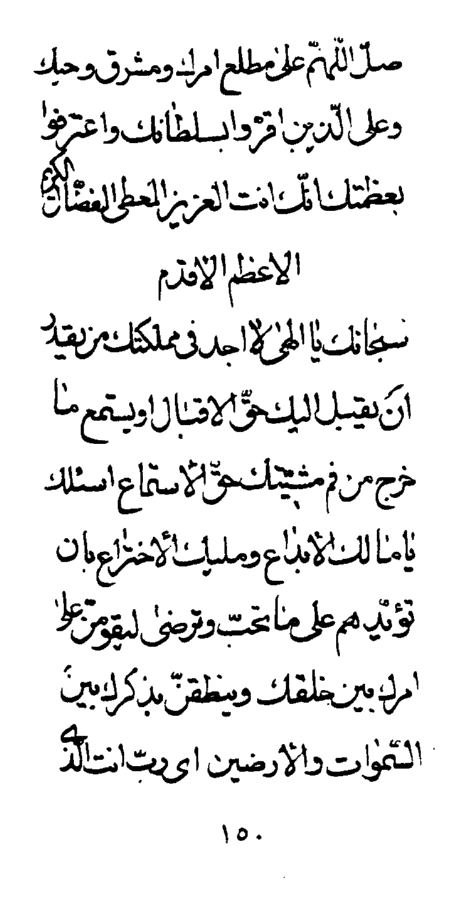 صلّ اللّهمّ علی مطلع امرك ومشرق وحيك
وعلی الّذين اقرّوا بسلطانك واعترفوا
بعظمتك انّك انت العزيز المعطی الفضّال الكريم
الاعظم الاقدم
سبحانك يا الهی لا اجد فی مملكتك من يقدر
ان يقبل اليك حقّ الاقبال او يستمع ما
خرج من فم مشيّتك حقّ الاستماع اسئلك
يا مالك الابداع ومليك الاختراع بان
تؤيّدهم علی ما تحبّ وترضی ليقومنّ علی
امرك بين خلقك وينطقنّ بذكرك بين
السّموات والارضين ای ربّ انت الّذی
١٥٠